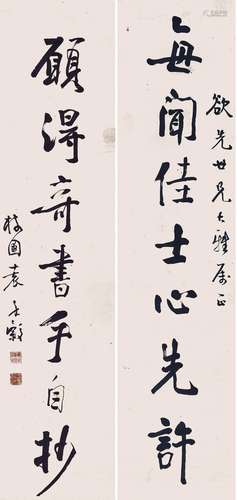 欲先世兄大雅屬正
每聞佳士心先許
願得奇書手自抄
袁